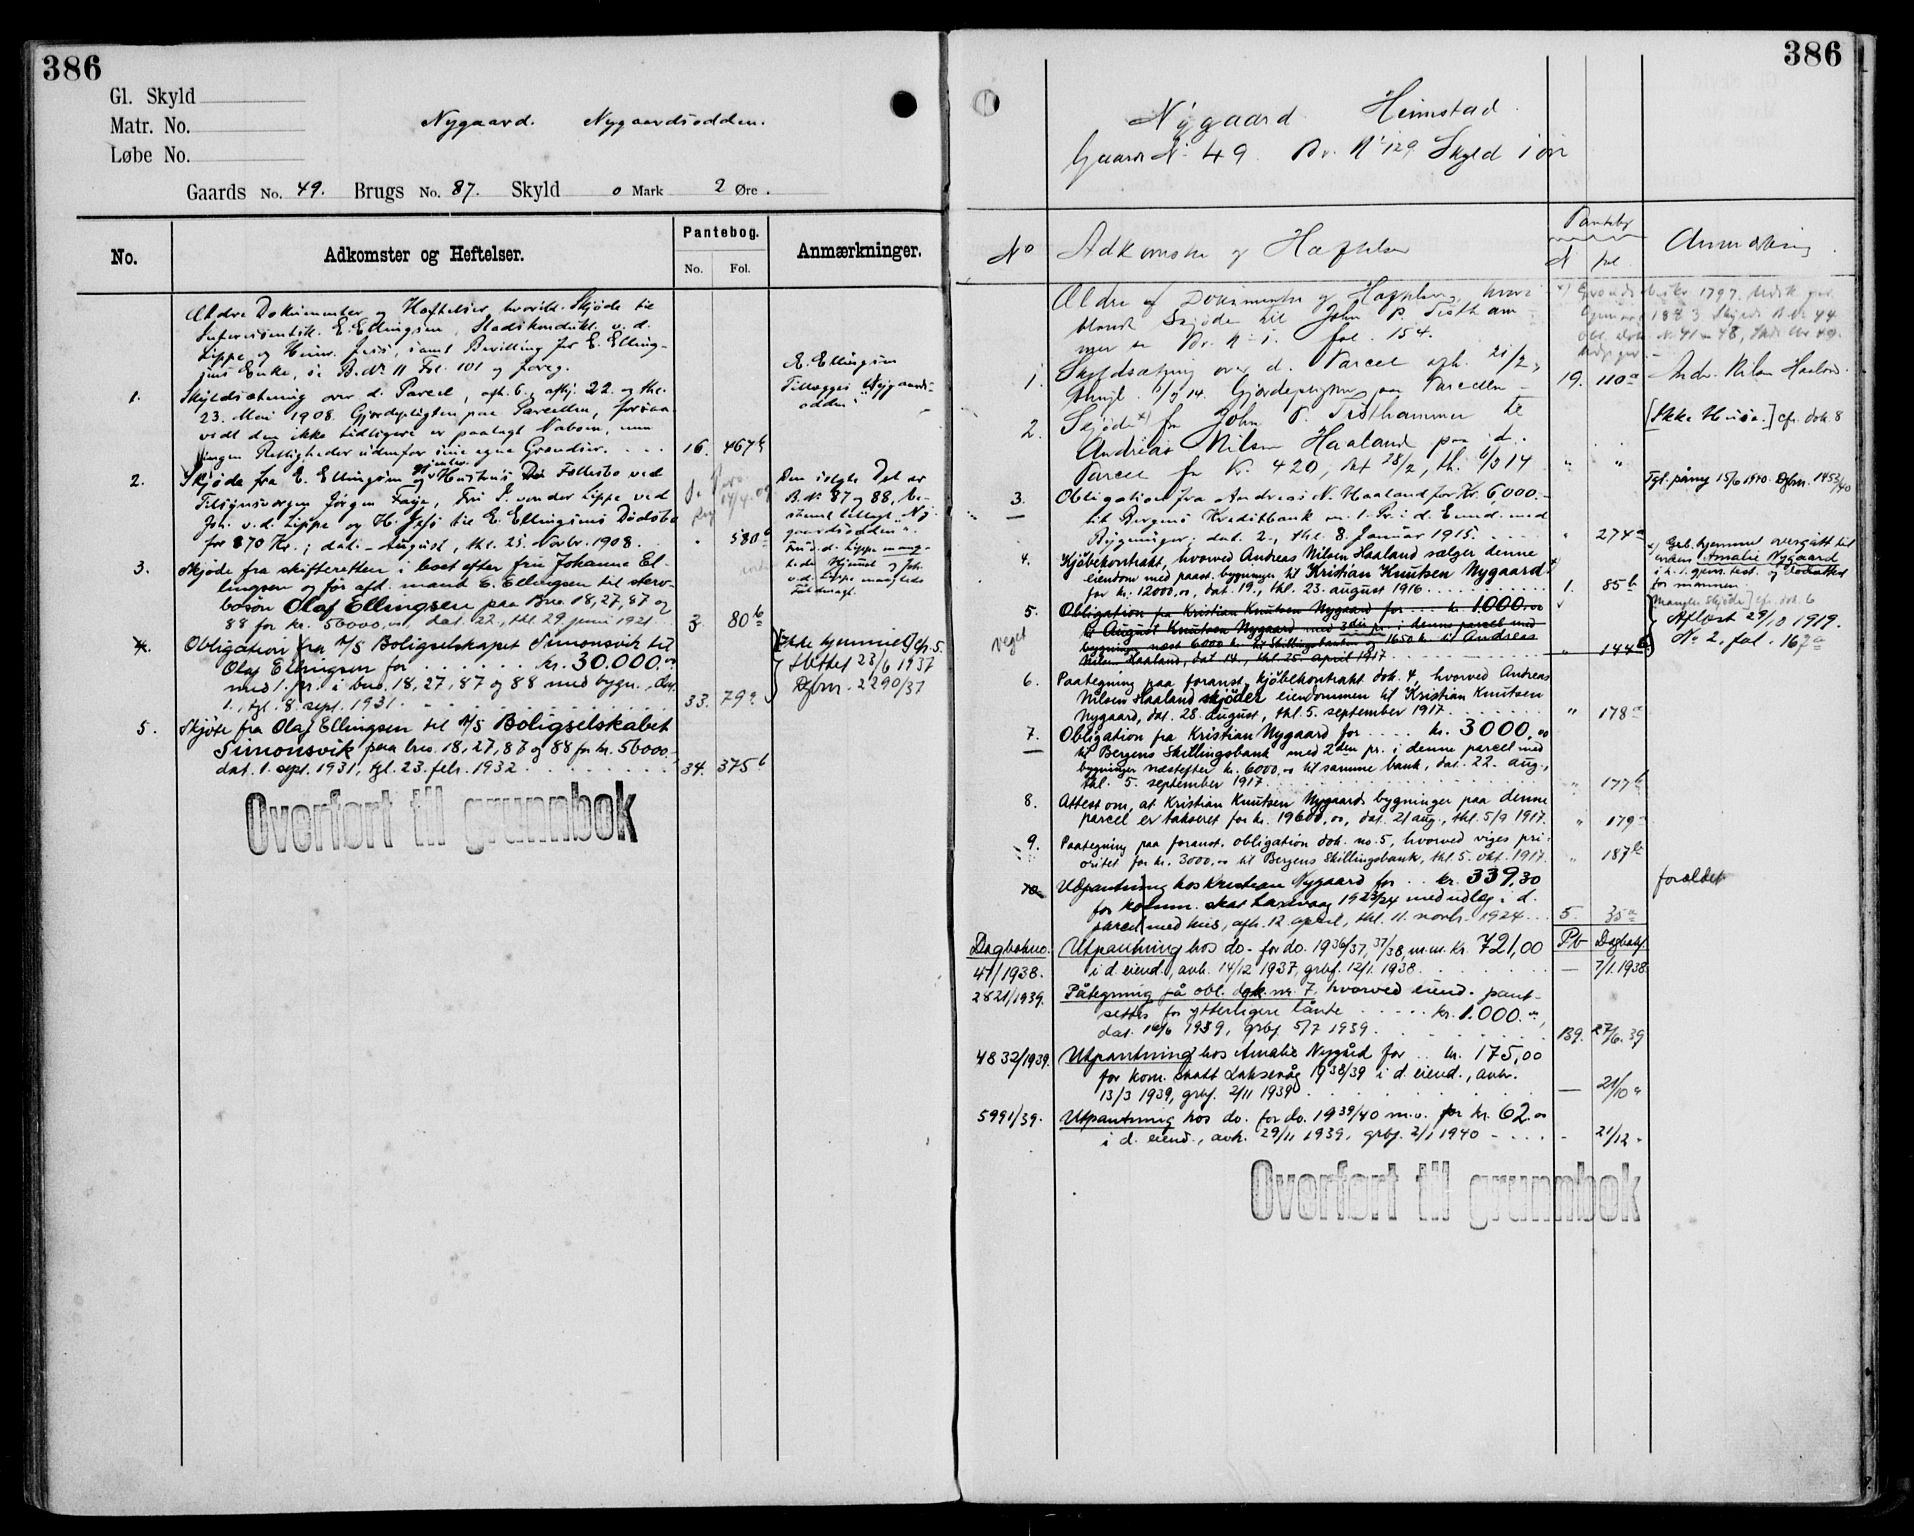 386
Gl. Skyld
Matr. No.
Løbe No.
Nygaard. Nygaardsodden.
Gaards No. 49. Brugs No. 87. Skyld 0 Mark 2 Øre.
No. Adkomster og Heftelser. Pantebog. No. Fol. Anmærkninger.
Ældre Dokumenter og Hæftelser, hvoribl. Skjøde til
E. Ellingsen, Stadskondukt. v. d.
Lippe og Henr. Jess, samt Bevilling for E. Elling-
sens Enke, se B.No 11 Fol. 101 og foreg.
1. Skyldsætning over d. Parcel, afh. 6, afhj. 22 og thl.
23. Mai 1908. Gjerdepligten paa Parcellen, forsaa-
vidt den ikke tidligere er paalagt Naboen, men
ingen Rettigheder udenfor sine egne Grændser. 16. 467b
E. Ellingsen
Tillægges "Nygaards-
odden"
2. Skjøde fra E. Ellingsen og Hustrus Føllesbo ved
Tilsynsværgen Jørgen Faye, Fru S. von der Lippe ved
Joh. v. d. Lippe og H. Jess til E. Ellingsens Dødsbo
for 870 Kr.; dat. - August, thl. 25. Novbr. 1908. " 580b
Den solgte Del av
B.No 87 og 88, be-
stemt tillagt "Ny-
gaardsodden".
Fru v. d. Lippe mang-
lede Hjemmel og Joh.
v. d. Lippe manglede
Fuldmagt.
3. Skjøde fra skifteretten i boet efter fru Johanne El-
lingsen og før afd. mand E. Ellingsen til sterv-
bosøn Olaf Ellingsen paa Bno. 18, 27, 87 og
88 for kr. 56000,00, dat. 22., thl. 29. juni 1921. 3. 80b
4. Obligation fra A/S Boligselskapet Simonsvik til
Olaf Ellingsen for kr. 30.000.00
med 1. pr. i bno. 18, 27, 87 og 88 med bygn., dat.
1., tgl. 8. sept. 1931. 33. 79a
[Ikke hjemmel] cfr. 5.
Slettet 23/6 1937
Dgbn. 2290/37
5. Skjøte fra Olaf Ellingsen til A/S Boligselskabet
Simonsvik paa bno. 18, 27, 87 og 88 for kr. 56000.-,
dat. 1. sept. 1931, tgl. 23. febr. 1932. 34. 375b
Overført til grunnbok
386
Nygaard. Heimstad.
Gaards No 49. Br. No 129 Skyld 1 øre
No Adkomster og Hæftelser Pantebog N fol Anmerkning
Ældre Dokumenter og Hæftelser, hvori-
blandt Skjøde til John P. Trøtham-
mer se Br. No 1. fol. 154.
1. Skyldsætning over d. Parcel afh. 21/2,
thingl. 6/3 14. Gjerdepligten paa Parcellen 19. 110a
2. Skjøde x) fra John P. Trøthammer til
Andreas Nilsen Haaland paa d.
Parcel for Kr. 420, dat 28/2, th. 6/3 14 " "
[Ikke Huse.] cfr. dok. 8
3. Obligation fra Andreas N. Haaland for Kr. 6000.-
til Bergens Kreditbank m. 1. Pr. i d. Eiend. med
Bygninger; dat. 2., thl. 8. Januar 1915. " 274a
Tgl. påny 15/6 1940 Dgbn. 1453/40
4. Kjøbekontrakt, hvorved Andreas Nilsen Haaland sælger denne
eiendom med paast. bygninger til Kristian Knutsen Nygaard x
for kr. 12000,00, dat. 19., thl. 23. august 1916. 1. 85b
x) Grb. hjemmel overgått til
enken Amalie Nygaard
for mannen
[Mangler skjøde] cfr. dok. 6
5. Obligation fra Kristian Knutsen Nygaard for kr. 1.000.00
til August Knutsen Nygaard med 3die pr. i denne parcel med
bygninger næst 6000 kr. til Skillingsbanken og 1650 kr. til Andreas
Nilsen Haaland, dat. 14., thl. 25. april 1917. " 144b
Veget
Aflæst 29/10 1919.
No 2. fol. 167a
6. Paategning paa foranst. kjøbekontrakt dok. 4, hvorved Andreas
Nilsen Haaland skjøder eiendommen til Kristian Knutsen
Nygaard, dat. 28. august, thl. 5. september 1917. " 178a
7. Obligation fra Kristian Nygaard for kr. 3000.00
til Bergens Skillingsbank med 2den pr. i denne parcel med
bygninger næstefter kr. 6000.00 til samme bank, dat. 22. aug.,
thl. 5. september 1917. " 177b
8. Attest om, at Kristian Knutsen Nygaards bygninger paa denne
parcel er takseret for kr. 19600,00, dat. 21 aug., thl. 5/9 1917. " 179a
9. Paategning paa foranst. obligation dok. no. 5, hvorved viges pri-
oritet for kr. 3000.00 til Bergens Skillingsbank, thl. 5. okt. 1917. " 187b
10. Udpantning hos Kristian Nygaard for kr. 339,30
for komm. skat Laxevaag 1923/24 med udlæg i d.
parcel med hus, afh. 12 april, thl. 11. novbr. 1924. 5. 35a
forældet
Dagbokno. Utpantning hos do. for do. 1936/37, 37/38, m.m. kr. 721,00 Pb Dagbokf.
41/1938. i d. eiend., avh. 14/12 1937, grbf. 12/1. 1938. — 7/1. 1938.
2821/1939. Påtegning på obl. dok. nr. 7, hvorved eiend. pant-
settes for ytterligere lånte kr. 1.000.00,
dat. 16/6 1939, grbf. 5/7 1939. Bg. 27/6. 39
4832/1939. Utpantning hos Amalie Nygård for kr. 175,00
for kom. skatt Laksevåg 1938/39 i d. eiend., avh.
13/3 1939, grbf. 2/11 1939. — 21/10 "
5991/39. Utpantning hos do. for do. 1939/40 m.v. for kr. 62.00
i d. eiend., avh. 29/11 1939, grbf. 2/1 1940 - 21/12 "
Overført til grunnbok